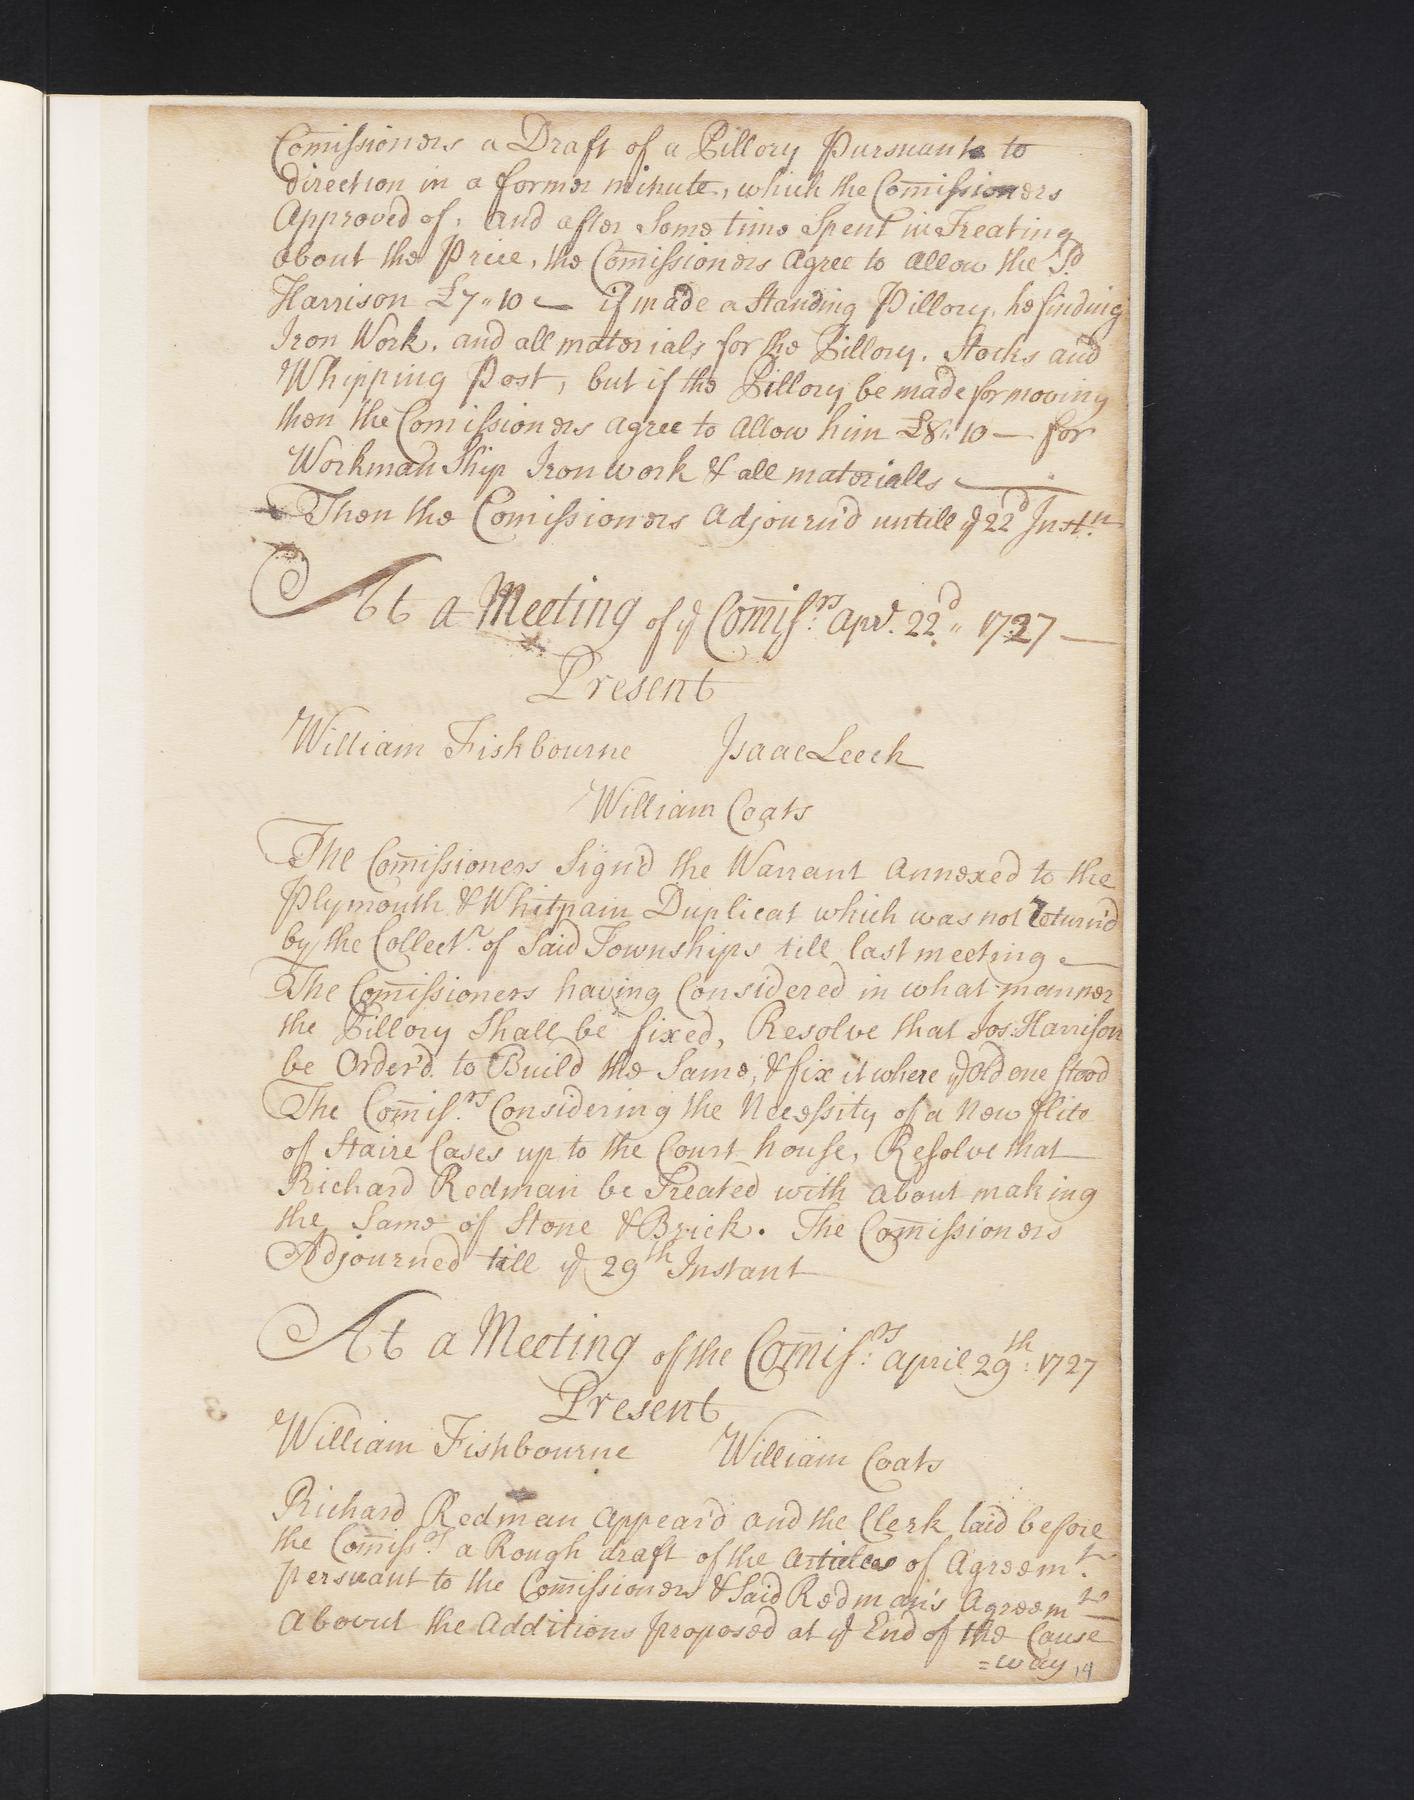 Com̄issioners a Draft of a Pillory Pursuant to
direction in a former minute, which the Com̄issioners
Approved of, And after Some time Spent in Treating
about the Price, the Com̄issioners Agree to allow the Sd
Harrison £7"10 — if made a Standing Pillory, he finding
Iron Work, and all materials for the Pillory, Stocks and
Whipping Post, but if the Pillory be made for moving
then the Com̄issioners agree to allow him £8"10 — for
Workman Ship Iron work & all materialls —
Then the Com̄issioners Adjourn'd untill ye 22d Instn
At a Meeting of ye Com̄issrs Apr. 22d 1727 —
Present
William Fishbourne Isaac Leech
William Coats
The Com̄issioners Sign'd the Warrant Annexed to the
Plymouth & Whitpain Duplicat which was not return'd
by the Collectr of Said Townships till last meeting —
The Com̄issioners having Considered in what manner
the Pillory Shall be fixed, Resolve that Jos: Harrison
be Order'd to Build the Same, & fix it where ye Old one stood
The Com̄issrs Considering the Necessity of a New flite
of Staire Cases up to the Court house, Resolve that
Richard Redman be Treated with about making
the Same of Stone & Brick. The Com̄issioners
Adjourned till ye 29th Instant
At a Meeting of the Com̄issrs April 29th: 1727
Present
William Fishbourne William Coats
Richard Redman Appear'd and the Clerk laid before
the Com̄issrs a Rough draft of the Articles of Agreemt
persuant to the Com̄issioners & Said Redman's Agreemts
About the Additions proposed at ye End of the Cause
=way
14